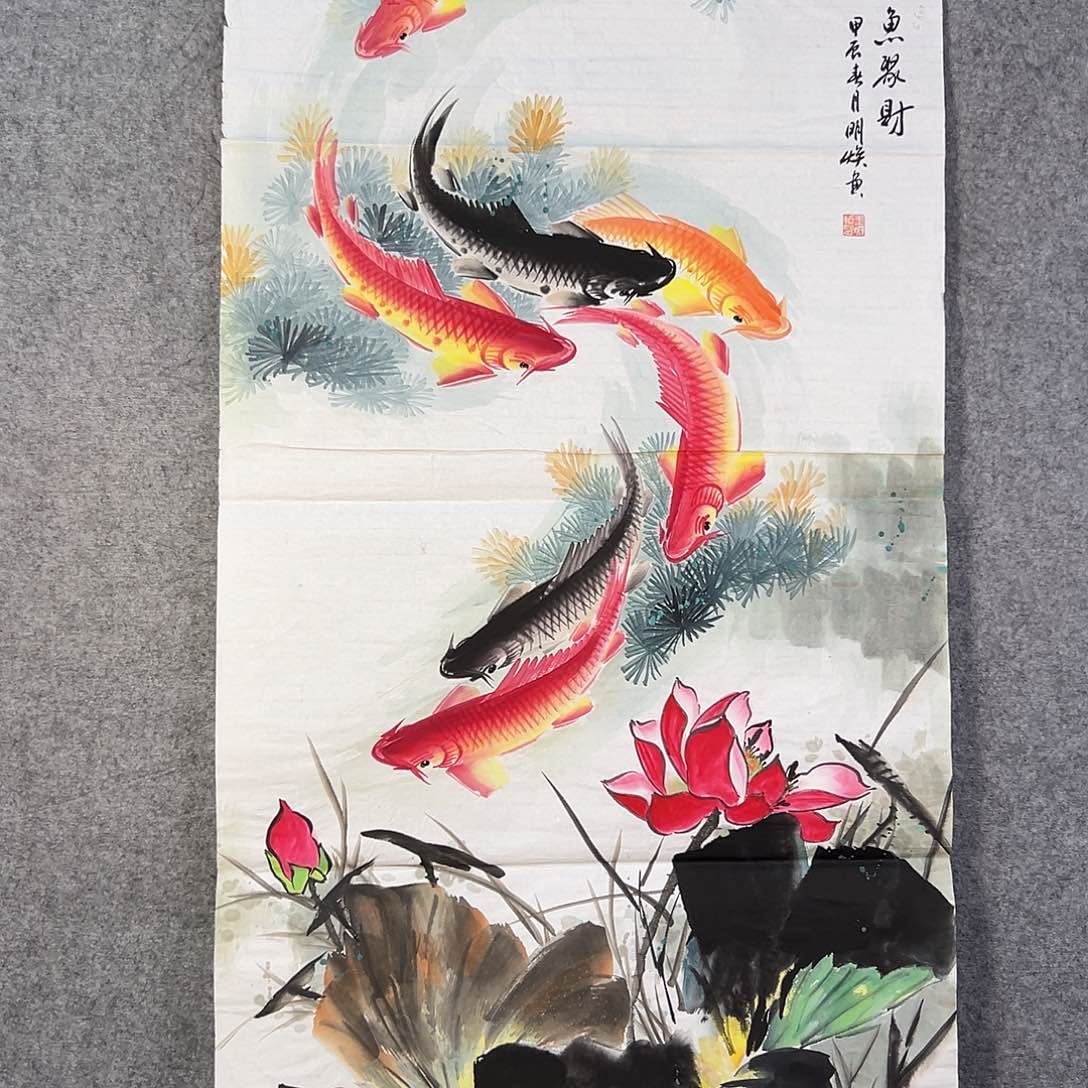 魚聚財
甲辰春月明煥画